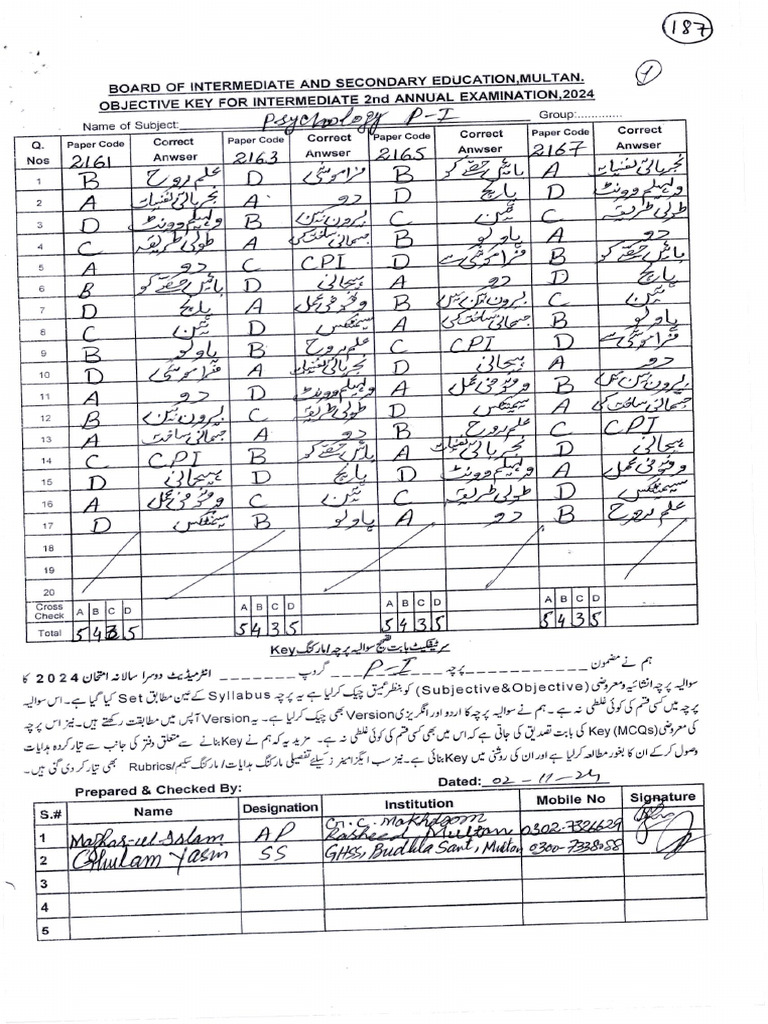 187
1
BOARD OF INTERMEDIATE AND SECONDARY EDUCATION,MULTAN.
OBJECTIVE KEY FOR INTERMEDIATE 2nd ANNUAL EXAMINATION,2024
Name of Subject: Psychology P-I Group:............
Q. Nos Paper Code 2161 Correct Anwser Paper Code 2163 Correct Anwser Paper Code 2165 Correct Anwser Paper Code 2167 Correct Anwser
1 B علم روح D فراموشی B بائیں حصے کو A تجرباتی نفسیات
2 A تجرباتی نفسیات A دو D پانچ D ولہیلم وونٹ
3 D ولہیلم وونٹ B بیرون بین C تین C طولی طریقہ
4 C طولی طریقہ A جسمانی ساخت کی B پاولو A دو
5 A دو C CPI D فراموشی سے B بائیں حصے کو
6 B بائیں حصے کو D ہیجانی A دو D پانچ
7 D پانچ A وقوفی عمل B بیرون بین C تین
8 C تین D سیمنٹکس A جسمانی ساخت کی B پاولو
9 B پاولو B علم روح C CPI D فراموشی سے
10 D فراموشی A تجرباتی نفسیات D ہیجانی A دو
11 A دو D ولہیلم وونٹ A وقوفی عمل B بیرون بین
12 B بیرون بین C طولی طریقہ D سیمنٹکس A جسمانی ساخت کی
13 A جسمانی ساخت A دو B علم روح C CPI
14 C CPI B بائیں حصے کو A تجرباتی نفسیات D ہیجانی
15 D ہیجانی D پانچ D ولہیلم وونٹ A وقوفی عمل
16 A وقوفی عمل C تین C طولی طریقہ D سیمنٹکس
17 D سیمنٹکس B پاولو A دو B علم روح
18
19
20
Cross Check A B C D A B C D A B C D A B C D
Total 5 4 3 5 5 4 3 5 5 4 3 5 5 4 3 5
سرٹیفکیٹ بابت تصحیح سوالیہ پرچہ/مارکنگ Key
ہم نے مضمون پرچہ P-I گروپ انٹرمیڈیٹ دوسرا سالانہ امتحان 2024 کا
سوالیہ پرچہ انشائیہ و معروضی (Subjective&Objective) کو بنظر عمیق چیک کر لیا ہے یہ پرچہ Syllabus کے عین مطابق Set کیا گیا ہے۔ اس سوالیہ
پرچہ میں کسی قسم کی کوئی غلطی نہ ہے۔ ہم نے سوالیہ پرچہ کا اردو اور انگریزی Version بھی چیک کر لیا ہے۔ یہ Version آپس میں مطابقت رکھتے ہیں۔ نیز اس پرچہ
کی معروضی (MCQs) Key کی بابت تصدیق کی جاتی ہے کہ اس میں بھی کسی قسم کی کوئی غلطی نہ ہے۔ مزید یہ کہ ہم نے Key بنانے سے متعلق دفتر کی جانب سے تیار کردہ ہدایات
وصول کر کے ان کا بغور مطالعہ کر لیا ہے اور ان کی روشنی میں Key بنائی ہے۔ نیز سب ایگزامینرز کیلئے تفصیلی مارکنگ ہدایات/مارکنگ سکیم/Rubrics بھی تیار کر دی گئی ہیں۔
Prepared & Checked By: Dated: 02-11-24
S.# Name Designation Institution Mobile No Signature
1 Mazhar-ul-Islam AP G.C. Makhdoom Rasheed Multan 0302-7326629
2 Ghulam Yasin SS GHSS, Budhla Sant, Multan 0300-7338058
3
4
5